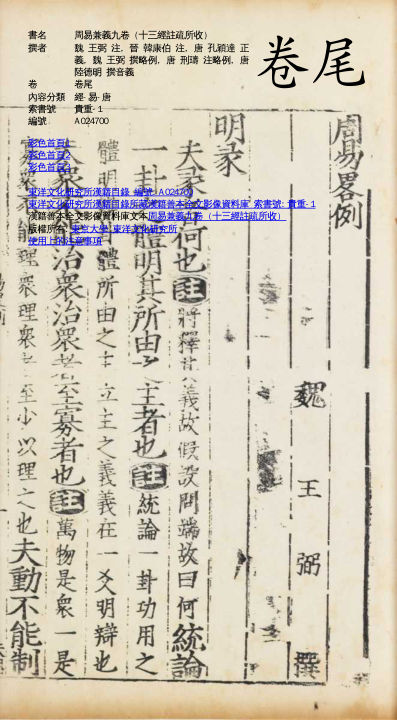 書名 周易兼義九卷（十三經註疏所收）
撰者 魏 王弼 注, 晉 韓康伯 注, 唐 孔穎達 正
義, 魏 王弼 撰略例, 唐 刑璹 注略例, 唐
陸德明 撰音義
卷 卷尾
內容分類 經-易-唐
索書號 貴重-1
編號 A024700
卷尾
彩色首頁1
彩色首頁2
彩色首頁3
東洋文化研究所漢籍目錄 編號: A024700
東洋文化研究所漢籍目錄所藏漢籍善本全文影像資料庫 索書號: 貴重-1
漢籍善本全文影像資料庫文本周易兼義九卷（十三經註疏所收）
版權所有: 東京大學 東洋文化研究所
使用上的注意事項
周易畧例
魏 王 弼 撰
明彖
夫彖者何也註將釋其義故假設問端故曰何統論
一卦之體明其所由之主者也註統論一卦功用之
體明 體所由之主立主之義義在一爻明辯也
夫衆 治衆治衆者至寡者也註萬物是衆一是
寡衆不能理衆理衆者至少以理之也夫動不能制